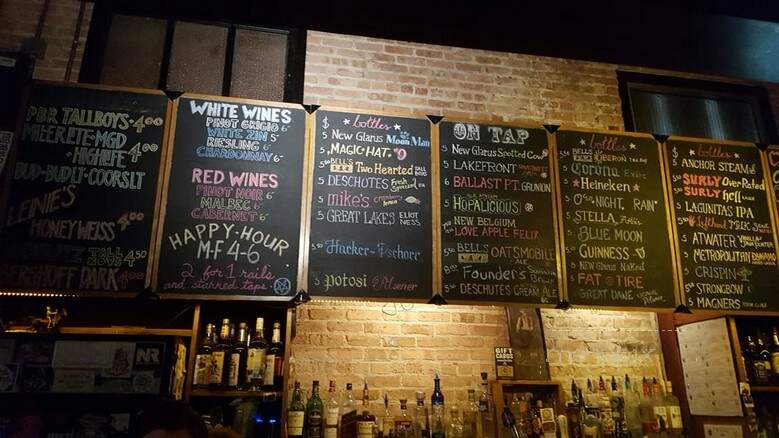 PBR TALLBOYS · 4.00
MILLER LITE · MGD
HIGHLIFE 4.00
BUD · BUD LT · COORS LT
LEINIE'S
HONEY WEISS 4.00
DARK 4.50
WHITE WINES
PINOT GRIGIO 6-
WHITE ZIN 5-
RIESLING 6-
CHARDONNAY 6-
RED WINES
PINOT NOIR 6-
MALBEC 6-
CABERNET 6-
HAPPY-HOUR
M-F 4-6
2 for 1 rails
and starred taps
$ bottles
5 New Glarus Moon Man
5 MAGIC HAT #9
5.50 BELL'S Two Hearted
5 DESCHUTES Fresh Squeezed IPA
5 mike's
5 GREAT LAKES ELIOT NESS
5.50 Hacker-Pschorr
5 POTOSI Pilsener
ON TAP
5 New Glarus Spotted Cow
5 LAKEFRONT
6 BALLAST PT. GRUNION
HOPALICIOUS
NEW BELGIUM
LOVE APPLE FELIX
BELL'S OATSMOBILE
Founder's
DESCHUTES CREAM ALE
$ bottles
BELL'S OBERON
Corona Extra
Heineken
O'so "NIGHT, RAIN"
STELLA Artois
BLUE MOON
GUINNESS
NEW GLARUS Naked
FAT TIRE
GREAT DANE
$ bottles
ANCHOR STEAM
SURLY OverRated
SURLY hell
LAGUNITAS IPA
Lefthand MILK Stout
ATWATER
METROPOLITAN
CRISPIN
STRONGBOW
MAGNERS
GIFT CARDS
NR